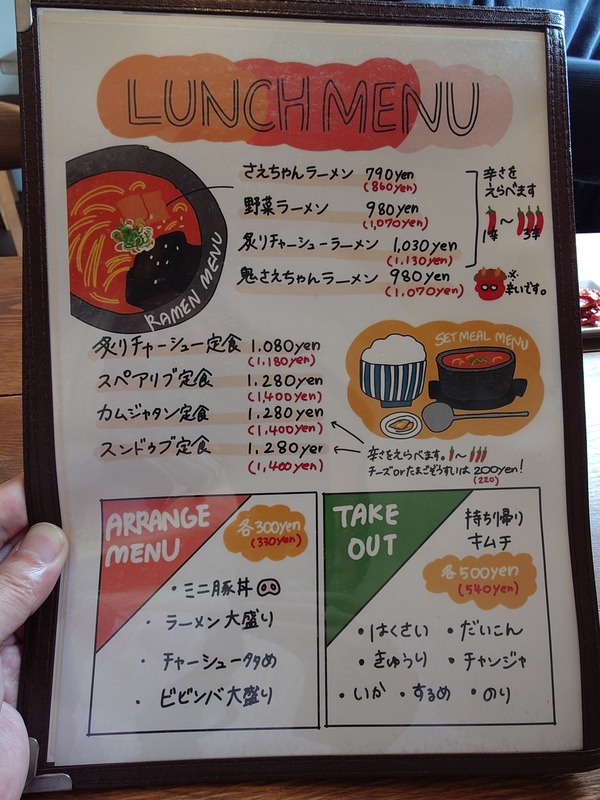 LUNCH MENU
さえちゃんラーメン 790yen
(860yen)
野菜ラーメン 980yen
(1,070yen)
炙りチャーシューラーメン 1,030yen
(1,130yen)
鬼さえちゃんラーメン 980yen
(1,070yen)
辛さを
えらべます
1辛 〜 3辛
※
辛いです。
RAMEN MENU
炙りチャーシュー定食 1,080yen
(1,180yen)
スペアリブ定食 1,280yen
(1,400yen)
カムジャタン定食 1,280yen
(1,400yen)
スンドゥブ定食 1,280yen
(1,400yen)
SET MEAL MENU
辛さをえらべます。〜
チーズorたまごぞうすいは 200yen!
(220)
ARRANGE
MENU
各300yen
(330yen)
・ミニ豚丼
・ラーメン大盛り
・チャーシュー多め
・ビビンバ大盛り
TAKE
OUT
持ち帰り
キムチ
各500yen
(540yen)
・はくさい ・だいこん
・きゅうり ・チャンジャ
・いか ・するめ ・のり